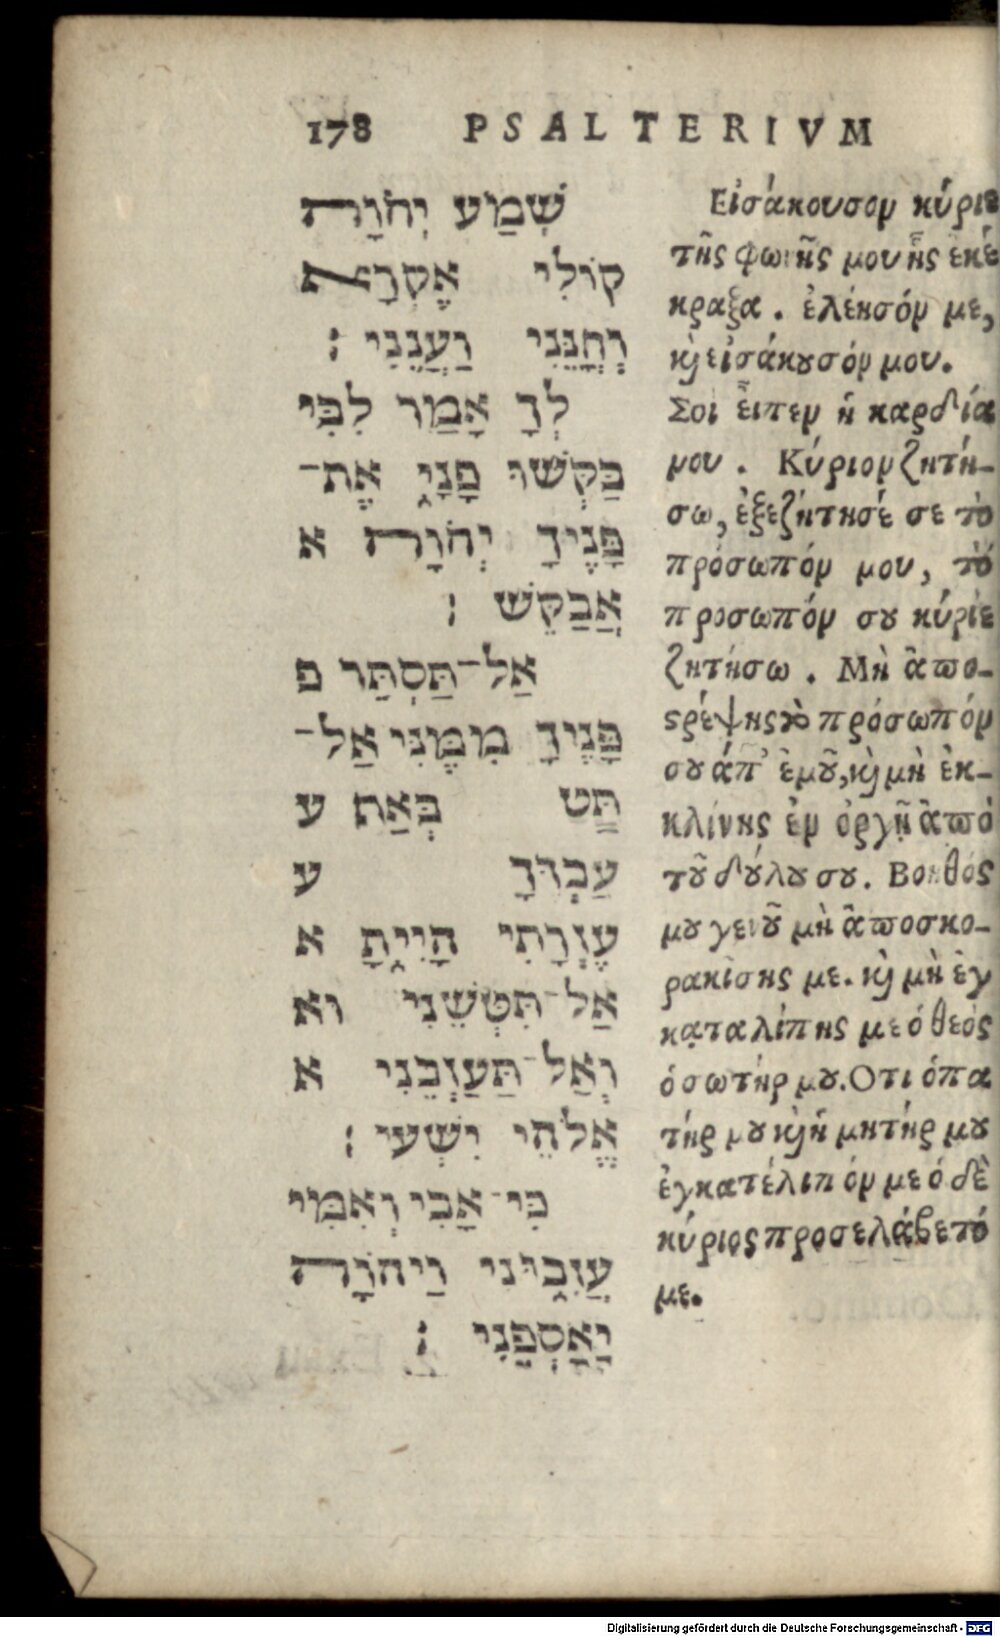 178 PSALTERIVM
שְׁמַע יְהֹוָה
קוֹלִי אֶקְרָא
וְחָנֵּנִי וַעֲנֵנִי :
לְךָ אָמַר לִבִּי
בַּקְּשׁוּ פָנָי אֶת־
פָּנֶיךָ יְהֹוָה א
אֲבַקֵּשׁ :
אַל־תַּסְתֵּר פ
פָּנֶיךָ מִמֶּנִּי אַל־
תַּט בְּאַת ע
עַבְדֶּךָ ע
עֶזְרָתִי הָיִיתָ א
אַל־תִּטְּשֵׁנִי וא
וְאַל־תַּעַזְבֵנִי א
אֱלֹהֵי יִשְׁעִי :
כִּי־אָבִי וְאִמִּי
עֲזָבוּנִי וַיהֹוָה
יַאַסְפֵנִי :
Εἰσάκουσον κύριε
τῆς φωνῆς μου ἧς ἐκέ
κραξα. ἐλέησόν με,
κϗ εἰσάκȣσόν μου.
Σοι εἶπεν ἡ καρδία
μου. Κύριον ζητή-
σω, ἐξεζήτησέ σε τὸ
πρόσωπόν μου, τὸ
προσωπόν σȣ κύριε
ζητήσω. Μὴ ἀπο-
ςρέψης τὸ πρόσωπόν
σȣ ἀπ' ἐμȣ͂, ϗ μὴ ἐκ-
κλίνης ἐν ὀργῇ ἀπὸ
τȣ͂ δȣ́λȣ σȣ. Βοηθός
μȣ γενȣ͂ μὴ ἀποσκο-
ρακίσης με. ϗ μὴ ἐγ
καταλίπης με ὁ θεὸς
ὁ σωτήρ μȣ. Οτι ὁ πα
τήρ μȣ ϗ ἡ μητήρ μȣ
ἐγκατέλιπόν με ὁ δὲ
κύριος προσελάβετό
με.
Digitalisierung gefördert durch die Deutsche Forschungsgemeinschaft - DFG